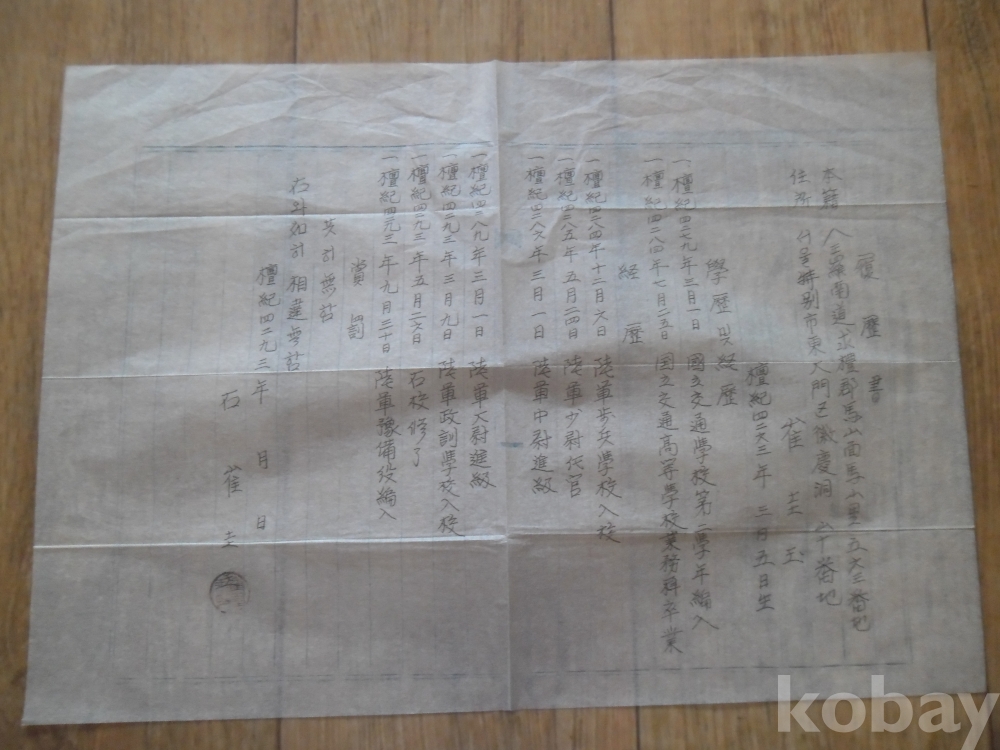 履歷書
本籍 全羅南道求禮郡馬山面馬山里五六三番地
住所 서울特別市東大門区徽慶洞 山十番地
崔 圭
檀紀四二六三年 三月五日生
學歷및経歷
一檀紀四二七九年三月一日 國立交通學校第二學年編入
一檀紀四二八四年七月二五日 国立交通高等學校業務科卒業
経歷
一檀紀四二八四年十二月六日 陸軍步兵學校入校
一檀紀四二八五年五月二四日 陸軍少尉任官
一檀紀四二八六年三月一日 陸軍中尉進級
一檀紀四二八九年三月一日 陸軍大尉進級
一檀紀四二九三年三月九日 陸軍政訓學校入校
一檀紀四二九三年五月二六日 右校修了
一檀紀四二九三年九月三十日 陸軍豫備役編入
賞罰
右와如히 相違無함
檀紀四二九三年 月 日
右 崔 圭
kobay